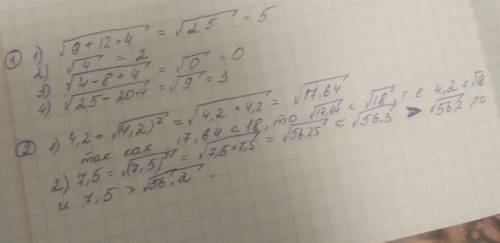 ① 1) √9+12+4 = √25 = 5
2) √4 = 2
3) √4-8+4 = √0 = 0
4) √25-20+4 = √9 = 3
② 1) 4,2 = √(4,2)² = √4,2 × 4,2 = √17,64
так как 17,64 < 18, то √17,64 < √18, т.е 4,2 < √18
2) 7,5 = √(7,5)² = √7,5 × 7,5 = √56,25 √56,3 > √56,2 то
и 7,5 > √56,2.